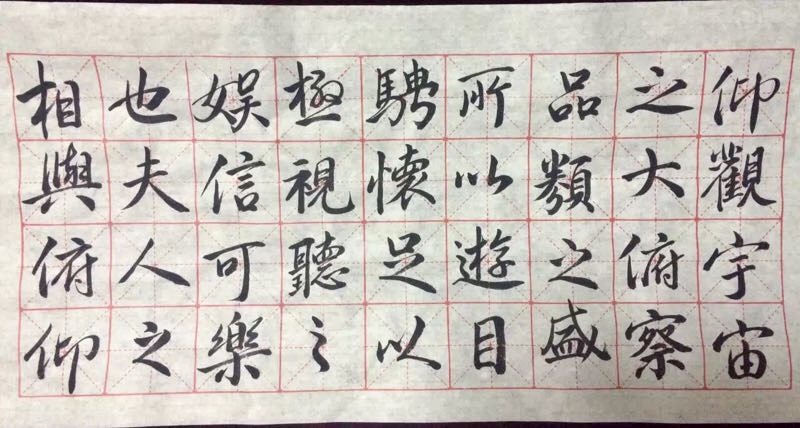 仰觀宇宙
之大俯察
品類之盛
所以遊目
騁懷足以
極視聽之
娛信可樂
也夫人之
相與俯仰